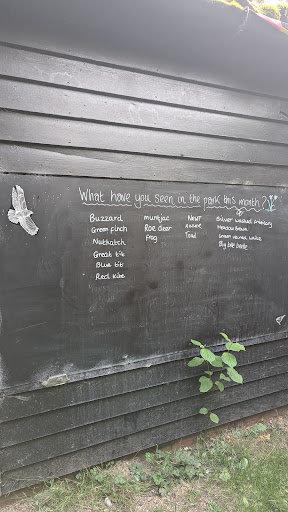 What have you seen in the park this month?
Buzzard
Green finch
Nuthatch
Great tit
Blue tit
Red Kite
muntjac
Roe deer
frog
Newt
Toad
Silver washed fritillary
Meadow Brown
Green veined white